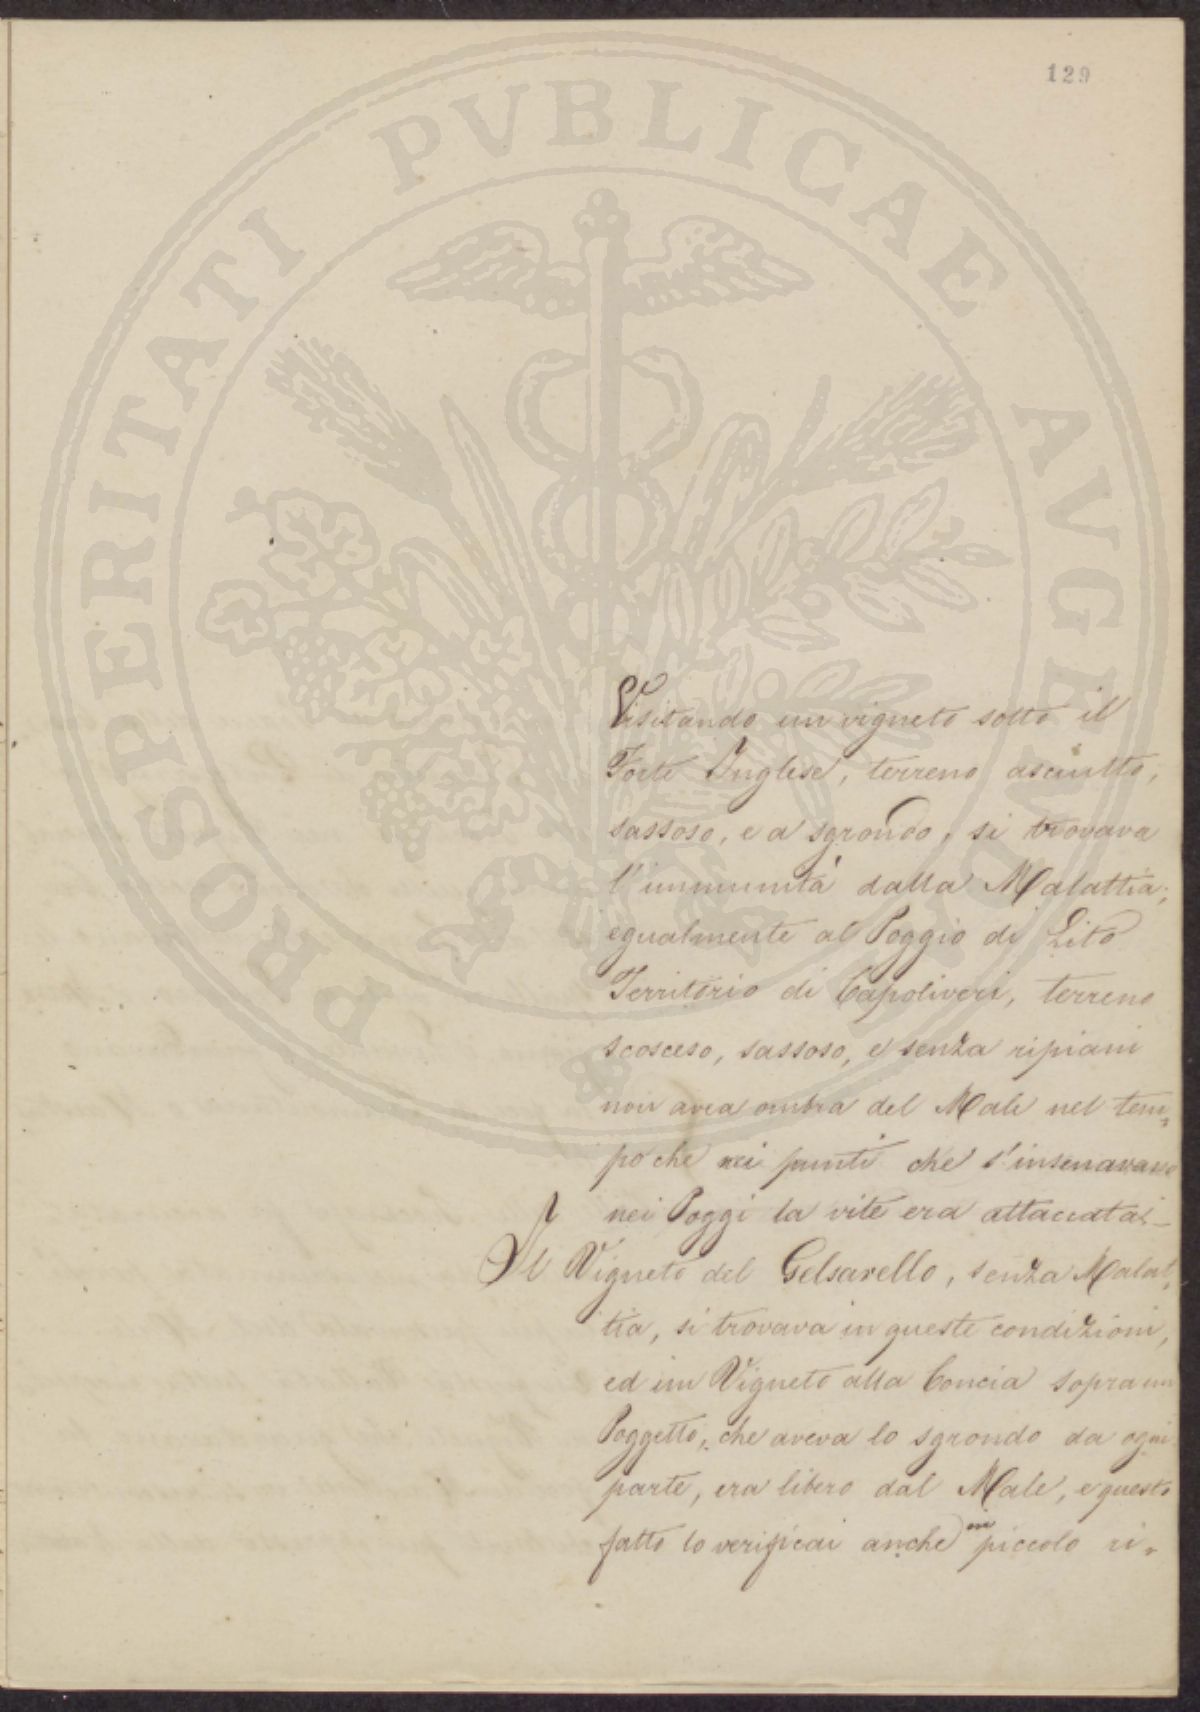 129
PROSPERITATI PVBLICAE AVGENDAE
Visitando un vigneto sotto il
Forte Inglese, terreno asciutto,
sassoso, e a sgrondo, si trovava
l'immunità dalla Malattia;
egualmente al Poggio di Lito
Territorio di Capoliveri, terreno
scosceso, sassoso, e senza ripiani
non avea ombra del Male nel tem=
po che nei punti che s'insenavano
nei Poggi la vite era attaccata.—
Il Vigneto del Gelsarello, senza Malat=
tia, si trovava in queste condizioni,
ed un Vigneto alla Concia sopra un
Poggetto, che aveva lo sgrondo da ogni
parte, era libero dal Male, e questo
fatto lo verificai anche in piccolo ri=